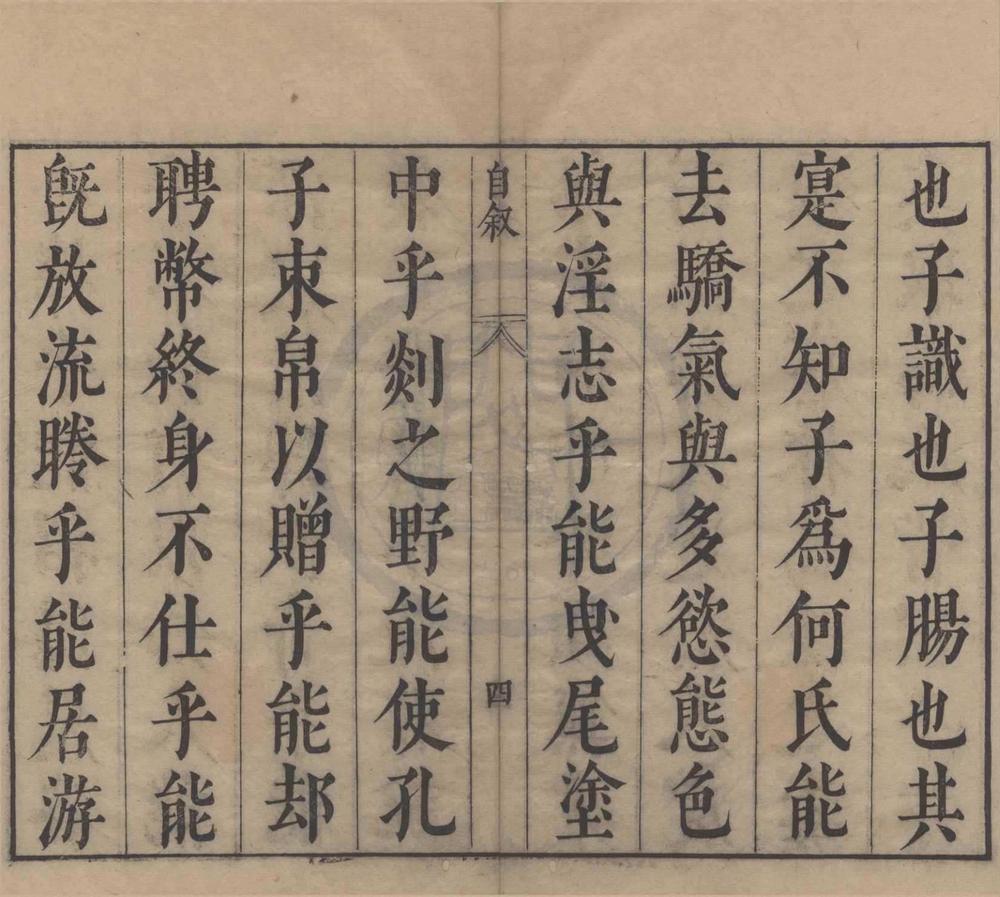 也子識也子腸也其
寔不知子爲何氏能
去驕氣與多慾態色
與淫志乎能曳尾塗
自叙
四
中乎剡之野能使孔
子束帛以贈乎能却
聘幣終身不仕乎能
旣放流聦乎能居游